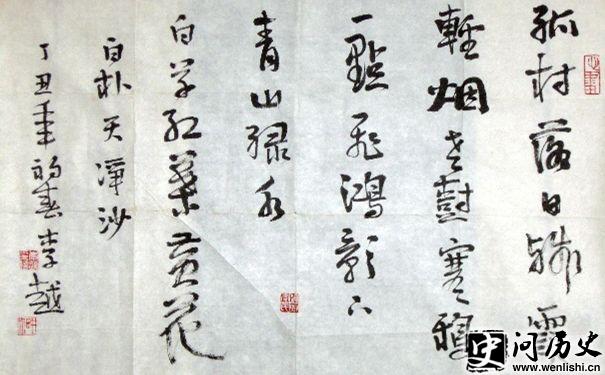 孤村落日残霞
輕烟老樹寒鴉
一點飛鴻影下
青山绿水
白草红葉黄花
白朴天淨沙
丁丑年初春李越
问历史
www.wenlishi.cn